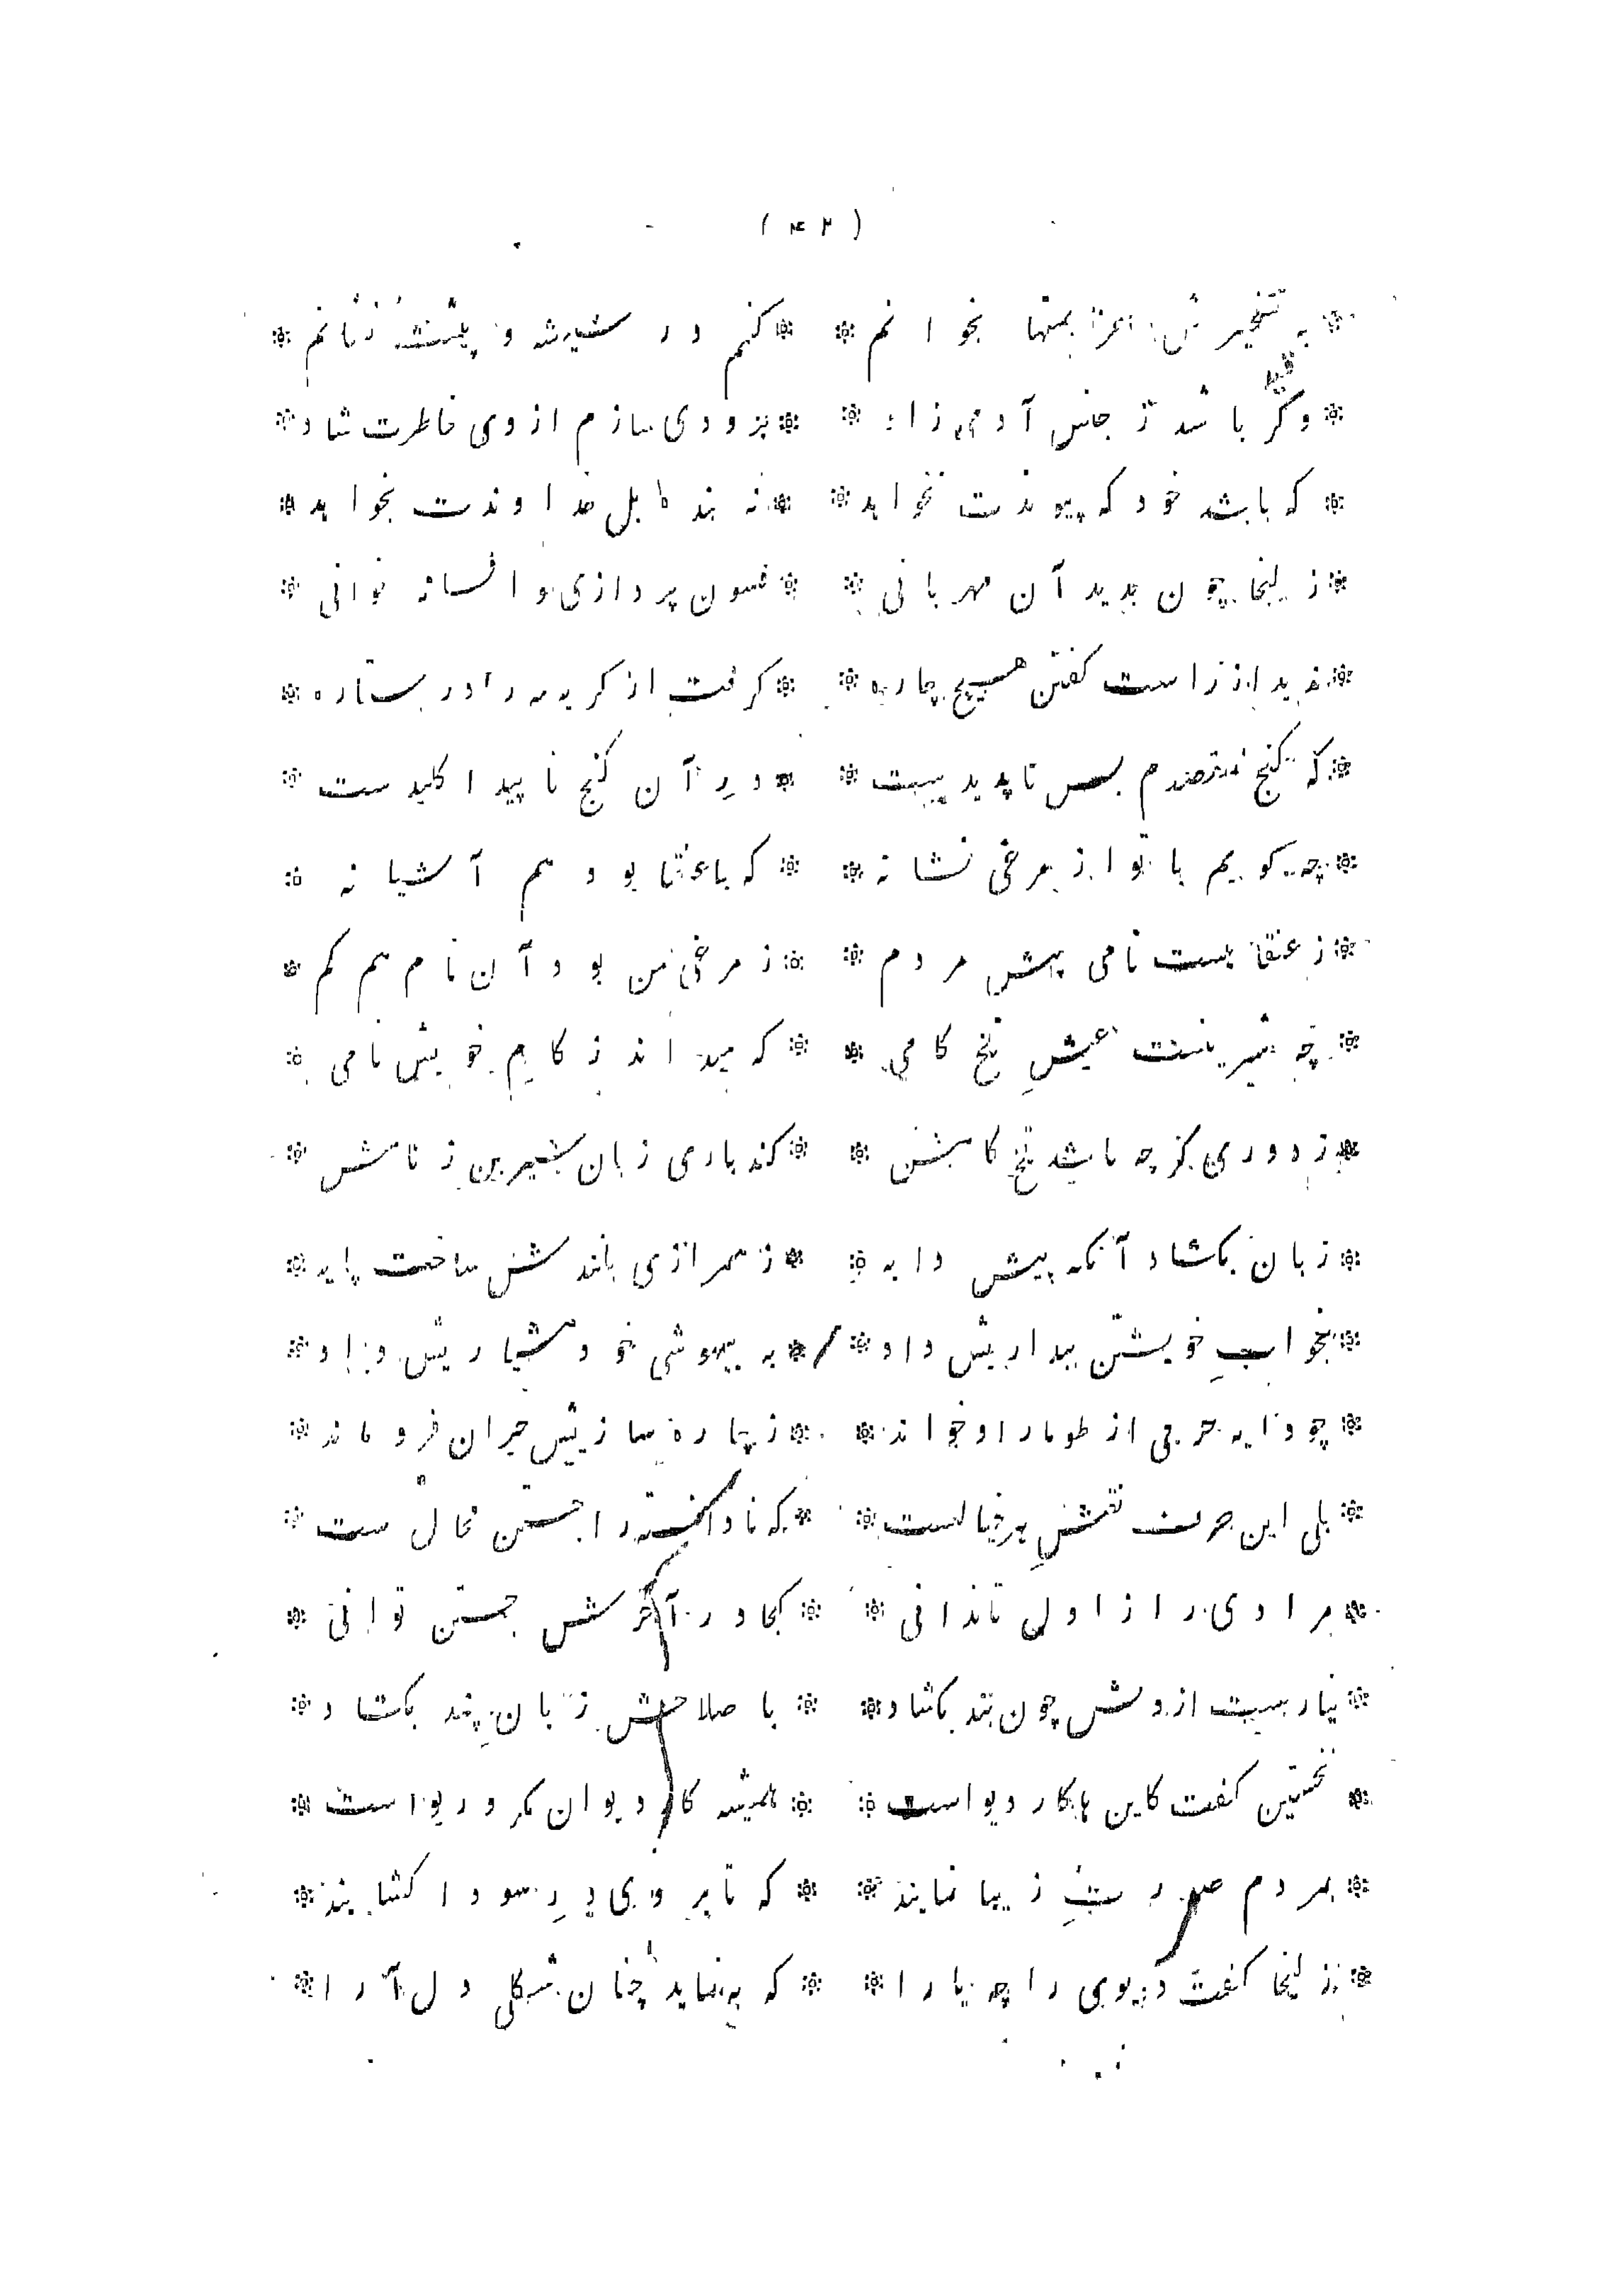 ( ۴۲ )
به تسخیرش عزیمتها بخوانم * کنم در شیشه و پیشت نشانم
وگر باشد ز جنس آدمی زاد * بزودی سازم از وی خاطرت شاد
که باشد خود که پیوندت نخواهد * نه بنده بل خداوندت بخواهد
زلیخا چون بدید آن مهربانی * فسون پردازی و افسانه خوانی
ندید از راست کفتن هیچ چاره * کرفت از کریه مه را در ستاره
که کنج مقصدم بس ناپدیدست * در آن کنج ناپیدا کلیدست
چه کویم با تو از مرغی نشانه * که با عنقا بود هم آشیانه
ز عنقا هست نامی پیش مردم * ز مرغ من بود آن نام هم کم
چه شیرینست عیشِ تلخ کامی * که میداند ز کامِ خویش نامی
ز دوری کرچه باشد تلخ کامش * کند باری زبان شیرین ز نامش
زبان بکشاد آنکه پیش دایه * ز همرازی بلندش ساخت پایه
بخوابِ خویشتن بیداریش داد * به بیهوشی خود هشیاریش داد
چو دایه حرفی از طومار او خواند * ز چاره سازیش حیران فرو ماند
بلی این حرف نقشِ هر خیالست * که نادانسته را جستن محال ست
مرادی را ز اول تا ندانی * کجا در آخرش جستن توانی
نیارست از دلش چون بند بکشاد * باصلاحش زبان پند بکشاد
نخستین کفت کاین ها کار دیو است * همیشه کار دیوان مکر و ریو است
بمردم صورتِ زیبا نمایند * که تا بر وی درِ سودا کشایند
زلیخا کفت دیوی را چه یارا * که بنماید چنان شکلی دل آرا